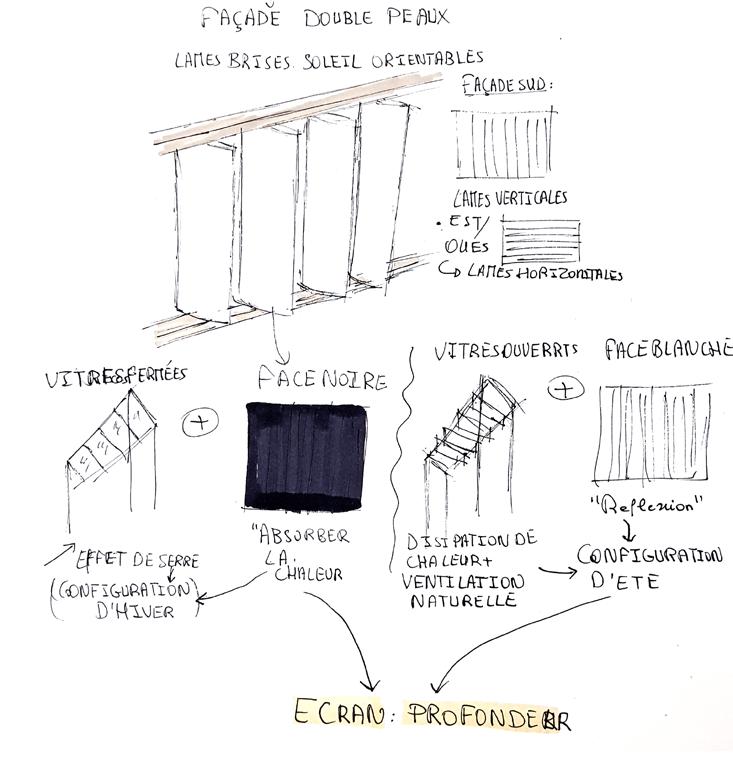 FAÇADE DOUBLE PEAUX
LAMES BRISES SOLEIL ORIENTABLES
FAÇADE SUD:
LAMES VERTICALES
• EST/
OUES
↳ LAMES HORIZONTALES
VITRES FERMÉES
FACE NOIRE
VITRES OUVERRTS
FACE BLANCHE
+
+
"Reflexion"
"ABSORBER
LA
CHALEUR
EFFET DE SERRE
(CONFIGURATION)
D'HIVER
DISIPATION DE
CHALEUR+
VENTILATION
NATURELLE
CONFIGURATION
D'ETE
ECRAN: PROFONDEUR